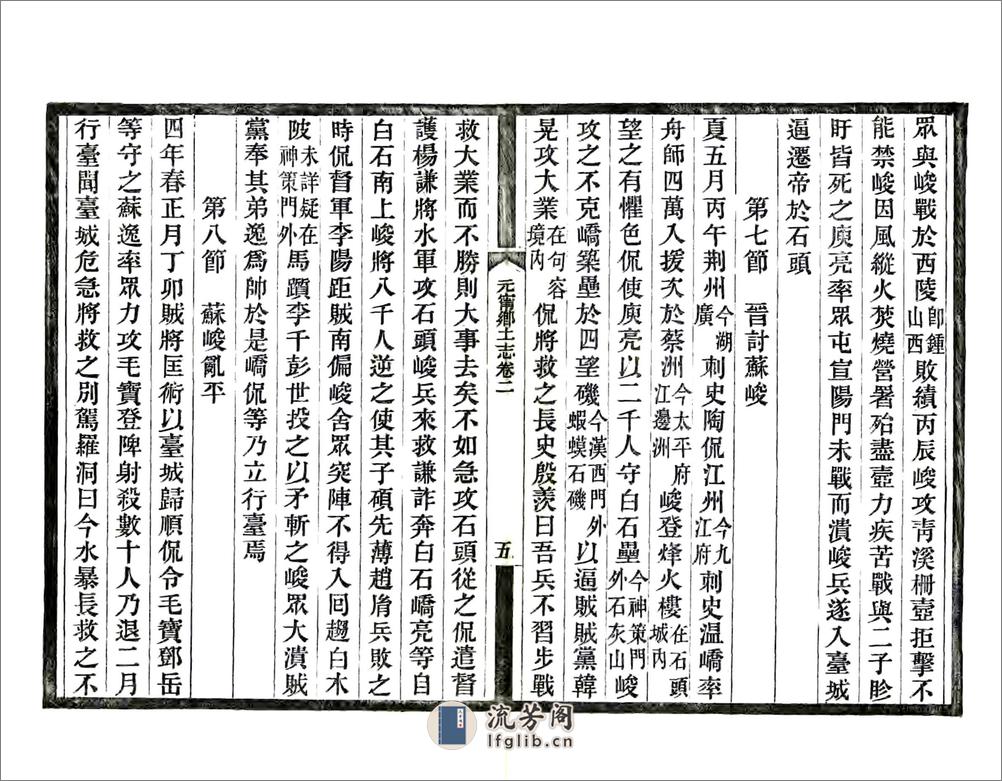 眾與峻戰於西陵卽鍾山西敗績丙辰峻攻靑溪柵壼拒擊不
能禁峻因風縱火焚燒營署殆盡壼力疾苦戰與二子眕
盱皆死之庾亮率眾屯宣陽門未戰而潰峻兵遂入臺城
逼遷帝於石頭
第七節　晉討蘇峻
夏五月丙午荆州今湖廣刺史陶侃江州今九江府刺史温嶠率
舟師四萬入援次於蔡洲今太平府江邊洲峻登烽火樓在石頭城內
望之有懼色侃使庾亮以二千人守白石壘今神策門外石灰山峻
攻之不克嶠築壘於四望磯今漢西門外蝦蟆石磯以逼賊賊黨韓
晃攻大業在句容境內侃將救之長史殷羨曰吾兵不習步戰
元甯鄉土志卷二
五
救大業而不勝則大事去矣不如急攻石頭從之侃遣督
護楊謙將水軍攻石頭峻兵來救謙詐奔白石嶠亮等自
白石南上峻將八千人逆之使其子碩先薄趙胤兵敗之
時侃督軍李陽距賊南偏峻舍眾突陣不得入囘趨白木
陂未詳疑在神策門外馬躓李千彭世投之以矛斬之峻眾大潰賊
黨奉其弟逸爲帥於是嶠侃等乃立行臺焉
第八節　蘇峻亂平
四年春正月丁卯賊將匡術以臺城歸順侃令毛寶鄧岳
等守之蘇逸率眾力攻毛寶登陴射殺數十人乃退二月
行臺聞臺城危急將救之別駕羅洞曰今水暴長救之不
流芳阁
lfglib.cn